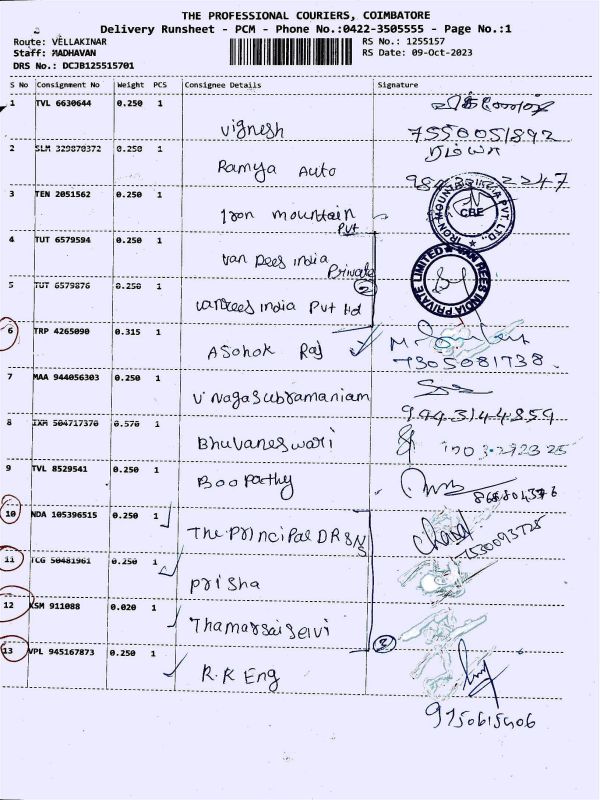 THE PROFESSIONAL COURIERS, COIMBATORE
Delivery Runsheet - PCM - Phone No.:0422-3505555 - Page No.:1
Route: VELLAKINAR
RS No.: 1255157
Staff: MADHAVAN
RS Date: 09-Oct-2023
DRS No.: DCJB125515701
S No Consignment No Weight PCS Consignee Details Signature
1 TVL 6630644 0.250 1
Vignesh 7550051892
2 SLM 329870372 0.250 1 ரம்யா
Ramya Auto
3 TEN 2051562 0.250 1
Iron mountain Pvt
IRON MOUNTAIN INDIA PVT. LTD., CBE
4 TUT 6579594 0.250 1
Van Rees india Private
VAN REES INDIA PRIVATE LIMITED
5 TUT 6579876 0.250 1 2
VanRees india Pvt ltd
6 TRP 4265090 0.315 1
Ashok Raj 7305081738
7 MAA 944056303 0.250 1
V. Nagasubramaniam 9443144859
8 IXM 504717370 0.570 1
Bhuvaneswari
9 TVL 8529541 0.250 1
Boopathy
10 NDA 105396515 0.250 1
The Principal DRSNS 7530093728
11 TCG 50481961 0.250 1
Prisha
12 KSM 911088 0.020 1
Thamaraiselvi
13 VPL 945167873 0.250 1
R.K Eng
9750615406